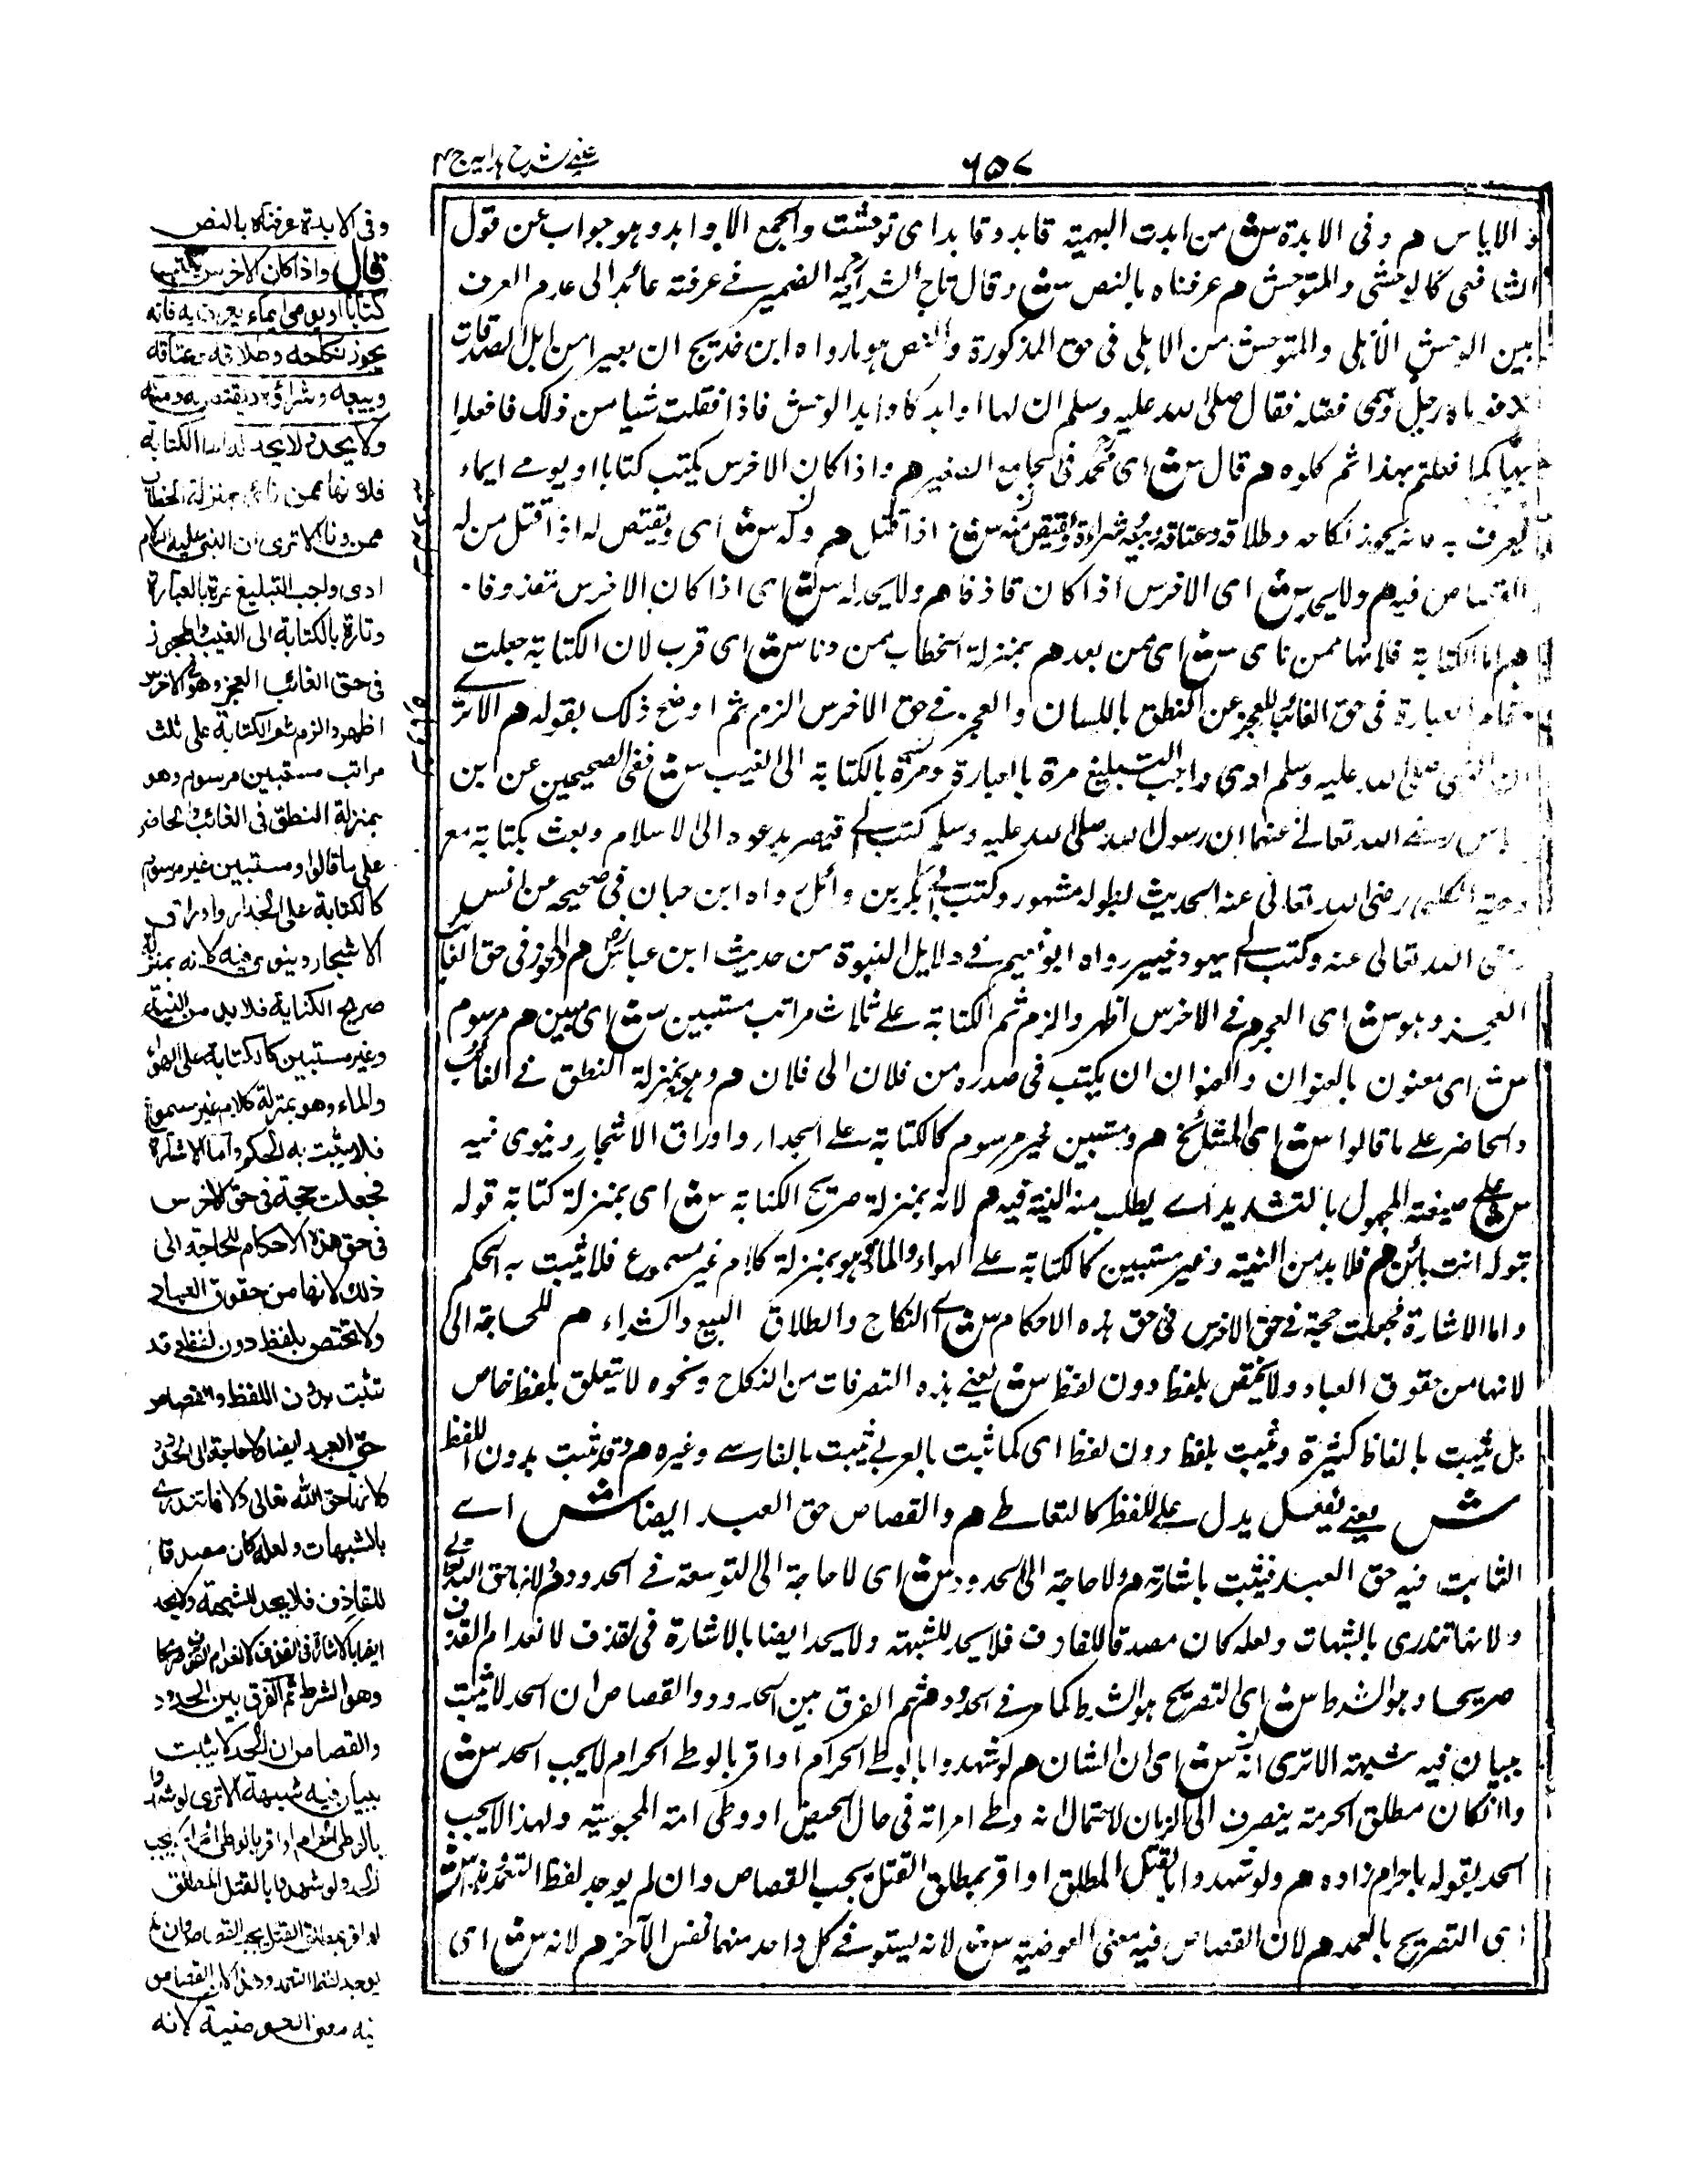 عینی شرح ہدایہ ج ۴
۶۵۷
والایاس هم وفی الابدة ش من ابدت البهیمة قابد وقابدا ی توحشت والجمع الاوابد وهو جواب عن قول
الشافعی کالوحشی والمتوحش هم عرفناه بالنص ش وقال تاج الشریعة الضمیر فے عرفته عائد الی عدم العرف
بین الوحش الأهلی والمتوحش من الاهلی فی حق المذکورة والنص هو ما رواه ابن خدیج ان بعیرا من ابل الصدقات
رماه رجل وسمی فقتله فقال صلی الله علیه وسلم ان لها اوابد کاوابد الوحش فاذا فعلت شیا من ذلک فافعلوا
بها کما فعلتم بهذا ثم کلوه هم قال ش ای محمد فی الجامع الصغیر هم واذا کان الاخرس یکتب کتابا او یومے ایماء
یعرف به فانه یجوز نکاحه وطلاقه وعتاقه وبیعه وشراؤه ویقتص منه ش اذا قتل هم وله ش ای ویقتص له اذا قتل من له
القصاص فیه هم ولا یحد ش ای الاخرس اذا کان قاذفا هم ولا یحد له ش ای اذا کان الاخرس مقذوفا
هم اما الکتابة فلانها ممن نای ش ای ممن بعد هم بمنزلة الخطاب ممن دنا ش ای قرب لان الکتابة جعلت
مقام العبارة فی حق الغائب للعجز عن النطق باللسان والعجز فے حق الاخرس الزم ثم اوضح ذلک بقوله هم الا تری
ان النبی صلی الله علیه وسلم ادی واجب التبلیغ مرة بالعبارة ومرة بالکتابة الی الغیب ش ففی الصحیحین عن ابن
عباس رضے الله تعالے عنهما ان رسول الله صلی الله علیه وسلم کتب الے قیصر یدعوه الی الاسلام وبعث بکتابه مع
دحیة الکلبی رضی الله تعالی عنه الحدیث لطوله مشهور وکتب الے بکر بن وائل رواه ابن حبان فی صحیحه عن انس
رضی الله تعالی عنه وکتب الے یهود خیبر رواه ابو نعیم فے دلایل النبوة من حدیث ابن عباس رض هم والمجوز فی حق الغائب
العجز وهو ش ای العجز هم فے الاخرس اظهر والزم ثم الکتابة علے ثلاث مراتب مستبین ش ای مبین هم مرسوم
ش ای معنون بالعنوان والعنوان ان یکتب فی صدره من فلان الی فلان هم وهو بمنزلة النطق فے الغائب
والحاضر علے ما قالوا ش ای المشائخ هم ومستبین غیر مرسوم کالکتابة علے الجدار واوراق الاشجار وینوی فیه
ش علے صیغة المجهول بالتشدید اے یطلب منه النیة فیه هم لانه بمنزلة صریح الکنایة ش ای بمنزلة کتابة قوله
بقوله انت بائن هم فلا بد من النیة وغیر مستبین کالکتابة علے الهواء والماء وهو بمنزلة کلام غیر مسموع فلا یثبت به الحکم
واما الاشارة فجعلت حجة فے حق الاخرس فی حق هذه الاحکام ش اے النکاح والطلاق البیع والشراء هم للحاجة الی
لانها من حقوق العباد ولا یختص بلفظ دون لفظ ش یعنے هذه التصرفات من النکاح ونحوه لا یتعلق بلفظ خاص
بل یثبت بالفاظ کثیرة ویثبت بلفظ دون لفظ ای کما ثبت بالعربے یثبت بالفارسے وغیره هم وقد یثبت بدون اللفظ
ش یعنے بفعل یدل علے اللفظ کالتعاطے هم والقصاص حق العبد ایضا ش اے
الثابت فیه حق العبد فیثبت باشارته هم ولا حاجة الی الحدود ش ای لا حاجة الی التوسعة فے الحدود هم لانها حق الله تعالے
ولانها تندری بالشبهات ولعله کان مصدقا للقاذف فلا یحد للشبهة ولا یحد ایضا بالاشارة فی القذف لانعدام القذف
صریحا وهو الشرط ش ای التصریح هو الشرط کما مر فے الحدود هم ثم الفرق بین الحدود والقصاص ان الحد لا یثبت
ببیان فیه شبهة الا تری انه ش ای ان الشان هم لو شهدوا بالوطے الحرام او اقر بالوطے الحرام لا یجب الحد ش
وان کان مطلق الحرمة ینصرف الی الزنا لاحتمال انه وطے امراته فی حال الحیض او وطی امته المجوسیة ولهذا لا یجب
الحد بقوله یا حرام زاده هم ولو شهدوا بالقتل المطلق او اقر بمطلق القتل یجب القصاص وان لم یوجد لفظ التعمد ش
ای التصریح بالعمد هم لان القصاص فیه معنی العوضیة ش لانه یستوفے کل واحد منهما نفس الآخر هم لانه ش ای
وفی الابدة عرفناه بالنص
قال واذا کان الاخرس یکتب
کتابا او یومی ایماء یعرف به فانه
یجوز نکاحه وطلاقه وعتاقه
وبیعه وشراؤه ویقتص له ومنه
ولا یحد ولا یحد له اما الکتابة
فلانها ممن نای بمنزلة الخطاب
ممن دنا الا تری ان النبی علیه السلام
ادی واجب التبلیغ مرة بالعبارة
وتارة بالکتابة الی الغیب والمجوز
فی حق الغائب العجز وهو فی الاخرس
اظهر والزم ثم الکتابة علی ثلث
مراتب مستبین مرسوم وهو
بمنزلة النطق فی الغائب والحاضر
علی ما قالوا ومستبین غیر مرسوم
کالکتابة علی الجدار واوراق
الاشجار وینوی فیه لانه بمنزلة
صریح الکنایة فلا بد من النیة
وغیر مستبین کالکتابة علی الهواء
والماء وهو بمنزلة کلام غیر مسموع
فلا یثبت به الحکم واما الاشارة
فجعلت حجة فی حق الاخرس
فی حق هذه الاحکام للحاجة الی
ذلک لانها من حقوق العباد
ولا تختص بلفظ دون لفظ وقد
تثبت بدون اللفظ والقصاص
حق العبد ایضا ولا حاجة الی الحدود
لانها حق الله تعالی ولانها تندری
بالشبهات ولعله کان مصدقا
للقاذف فلا یحد للشبهة ولا یحد
ایضا بالاشارة فی القذف لانعدام القذف صریحا
وهو الشرط ثم الفرق بین الحدود
والقصاص ان الحد لا یثبت
ببیان فیه شبهة الا تری لو شهدوا
بالوطی الحرام او اقر بالوطی الحرام لا یجب
الحد ولو شهدوا بالقتل المطلق
او اقر بمطلق القتل یجب القصاص وان لم
یوجد لفظ التعمد وهذا لان القصاص
فیه معنی العوضیة لانه